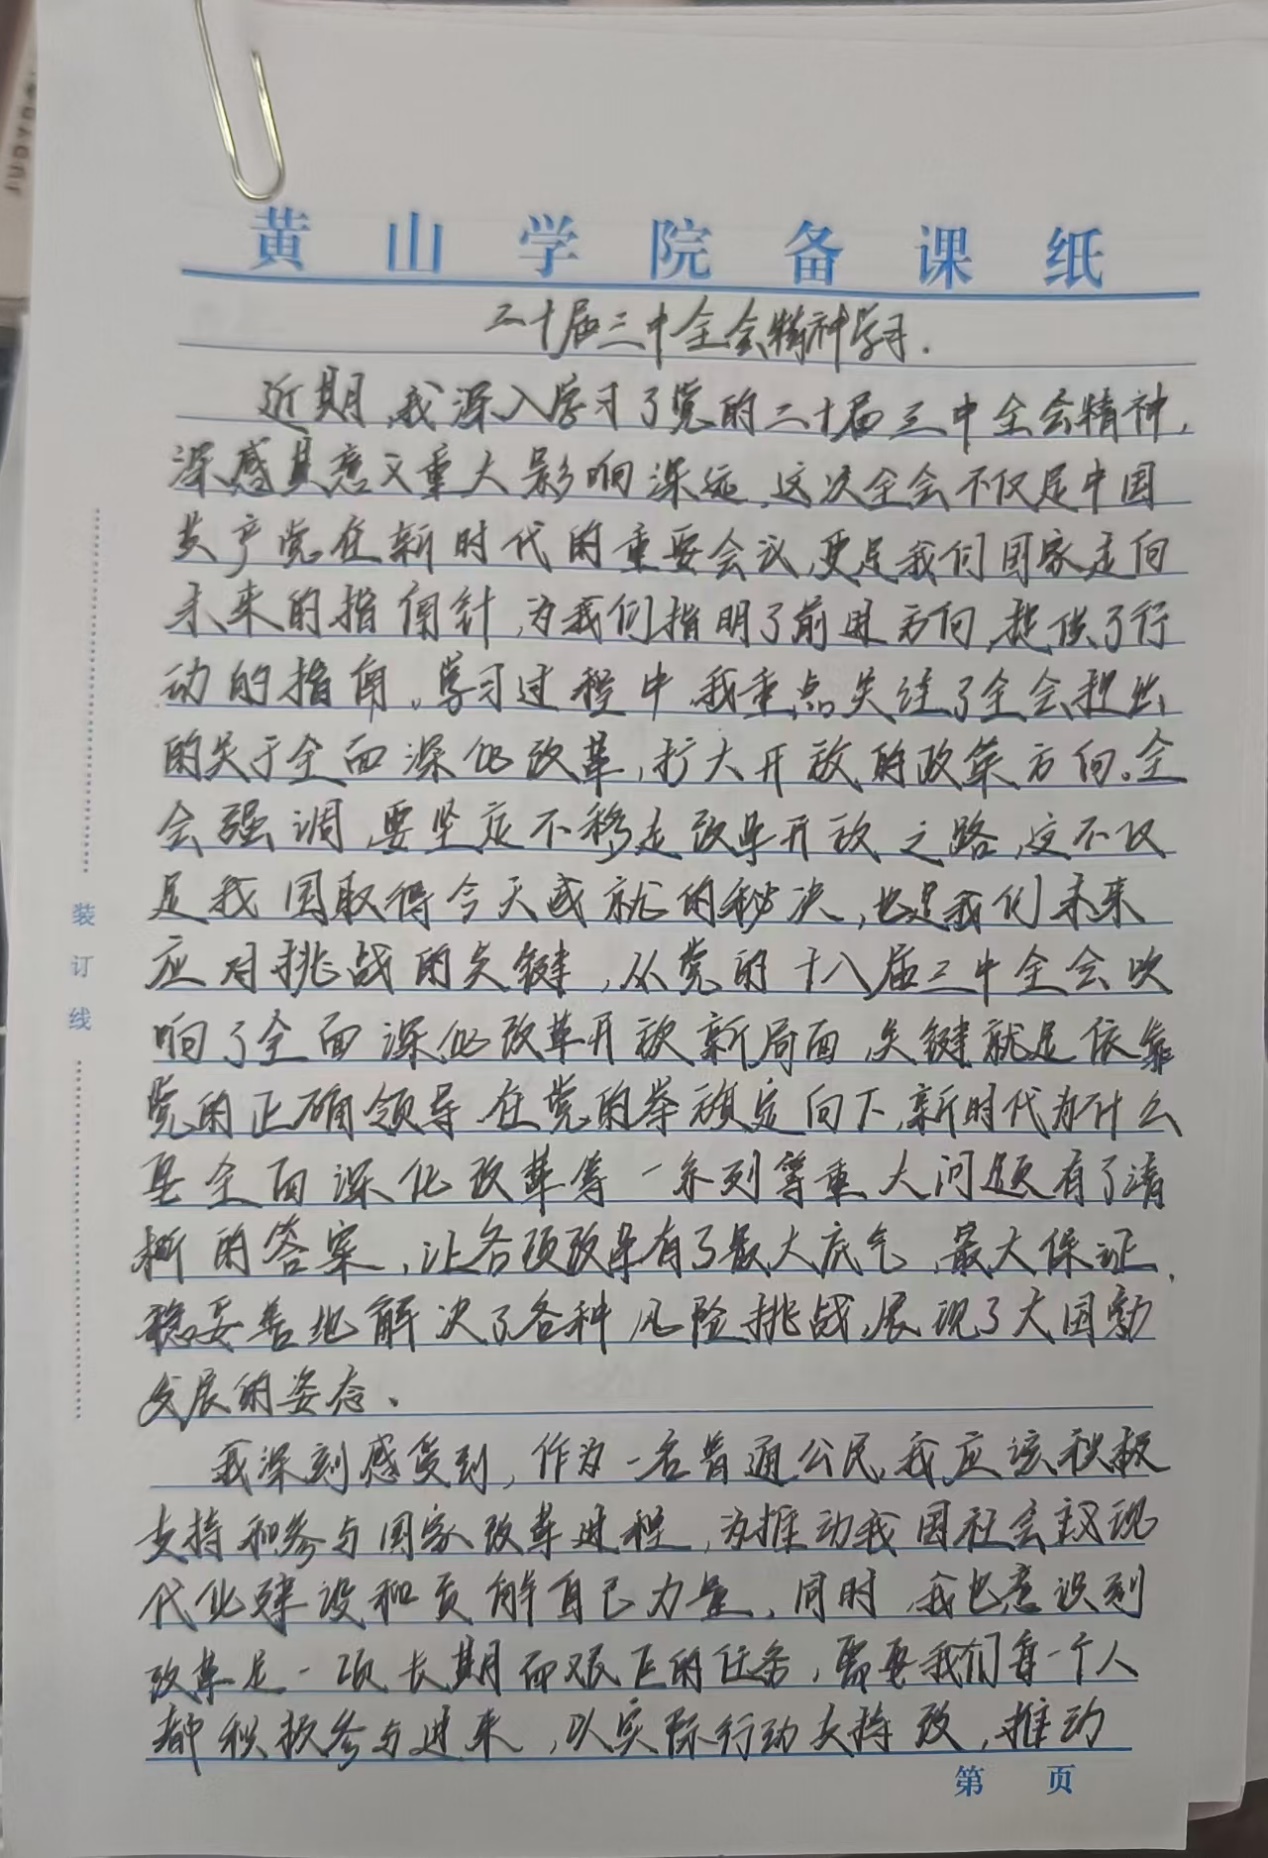 黄山学院备课纸
二十届三中全会精神学习.
近期,我深入学习了党的二十届三中全会精神,
深感其意义重大影响深远,这次全会不仅是中国
共产党在新时代的重要会议,更是我们国家走向
未来的指南针,为我们指明了前进方向,提供了行
动的指南。学习过程中,我重点关注了全会提出
的关于全面深化改革,扩大开放的政策方向。全
会强调,要坚定不移走改革开放之路,这不仅
是我国取得今天成就的秘决,也是我们未来
应对挑战的关键,从党的十八届三中全会吹
响了全面深化改革开放新局面,关键就是依靠
党的正确领导,在党的举旗定向下,新时代为什么
要全面深化改革等一系列等重大问题有了清
晰的答案,让各项改革有了最大底气,最大保证,
稳妥善地解决了各种风险挑战,展现了大国
发展的姿态、
我深刻感受到,作为一名普通公民,我应该积极
支持和参与国家改革进程,为推动我国社会主义现
代化建设和贡解自己力量,同时,我也意识到
改革是一项长期而艰巨的任务,需要我们每一个人
都积极参与进来,以实际行动支持改,推动
装
订
线
第 页